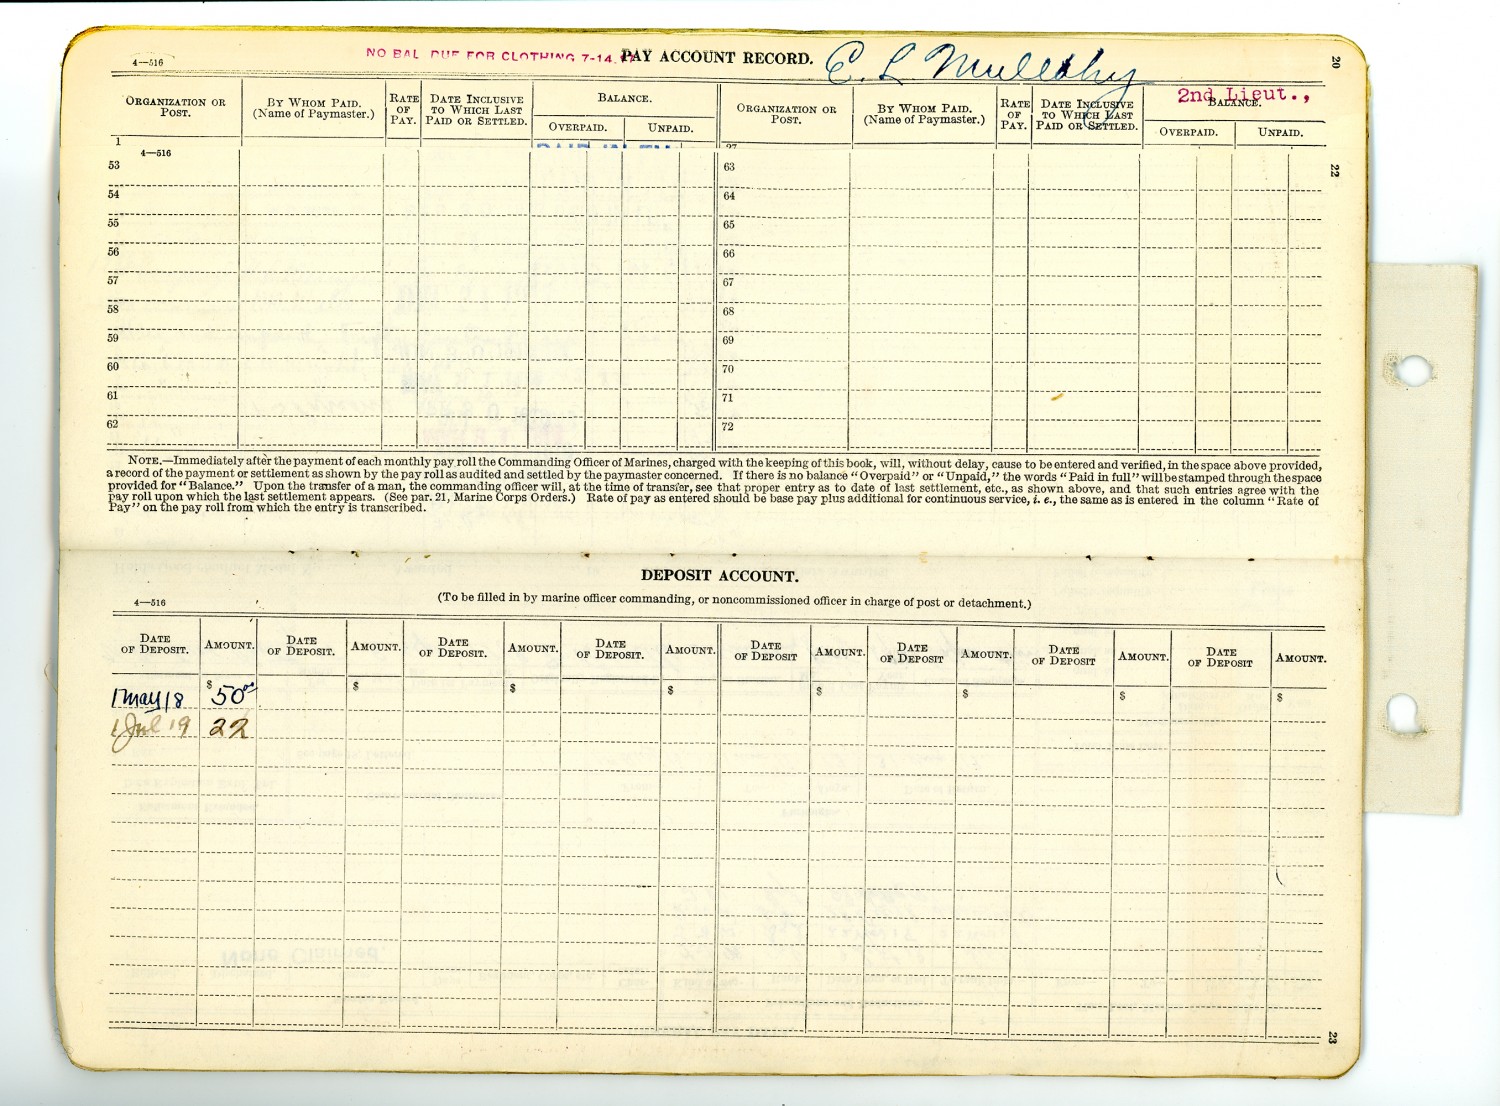 4—516
NO BAL DUE FOR CLOTHING 7-14
PAY ACCOUNT RECORD.
E. L. Mulledy
20
2nd Lieut.,
ORGANIZATION OR POST.
BY WHOM PAID. (Name of Paymaster.)
RATE OF PAY.
DATE INCLUSIVE TO WHICH LAST PAID OR SETTLED.
BALANCE.
OVERPAID.
UNPAID.
ORGANIZATION OR POST.
BY WHOM PAID. (Name of Paymaster.)
RATE OF PAY.
DATE INCLUSIVE TO WHICH LAST PAID OR SETTLED.
BALANCE.
OVERPAID.
UNPAID.
1
4—516
22
53
63
54
64
55
65
56
66
57
67
58
68
59
69
60
70
61
71
62
72
NOTE.—Immediately after the payment of each monthly pay roll the Commanding Officer of Marines, charged with the keeping of this book, will, without delay, cause to be entered and verified, in the space above provided,
a record of the payment or settlement as shown by the pay roll as audited and settled by the paymaster concerned. If there is no balance "Overpaid" or "Unpaid," the words "Paid in full" will be stamped through the space
provided for "Balance." Upon the transfer of a man, the commanding officer will, at the time of transfer, see that proper entry as to date of last settlement, etc., as shown above, and that such entries agree with the
pay roll upon which the last settlement appears. (See par. 21, Marine Corps Orders.) Rate of pay as entered should be base pay plus additional for continuous service, i. e., the same as is entered in the column "Rate of
Pay" on the pay roll from which the entry is transcribed.
DEPOSIT ACCOUNT.
4—516
(To be filled in by marine officer commanding, or noncommissioned officer in charge of post or detachment.)
DATE OF DEPOSIT.
AMOUNT.
DATE OF DEPOSIT.
AMOUNT.
DATE OF DEPOSIT.
AMOUNT.
DATE OF DEPOSIT.
AMOUNT.
DATE OF DEPOSIT
AMOUNT.
DATE OF DEPOSIT
AMOUNT.
DATE OF DEPOSIT
AMOUNT.
DATE OF DEPOSIT
AMOUNT.
1 May 18 $ 50 00 $ $ $ $ $ $ $
1 Jul 19 22
23